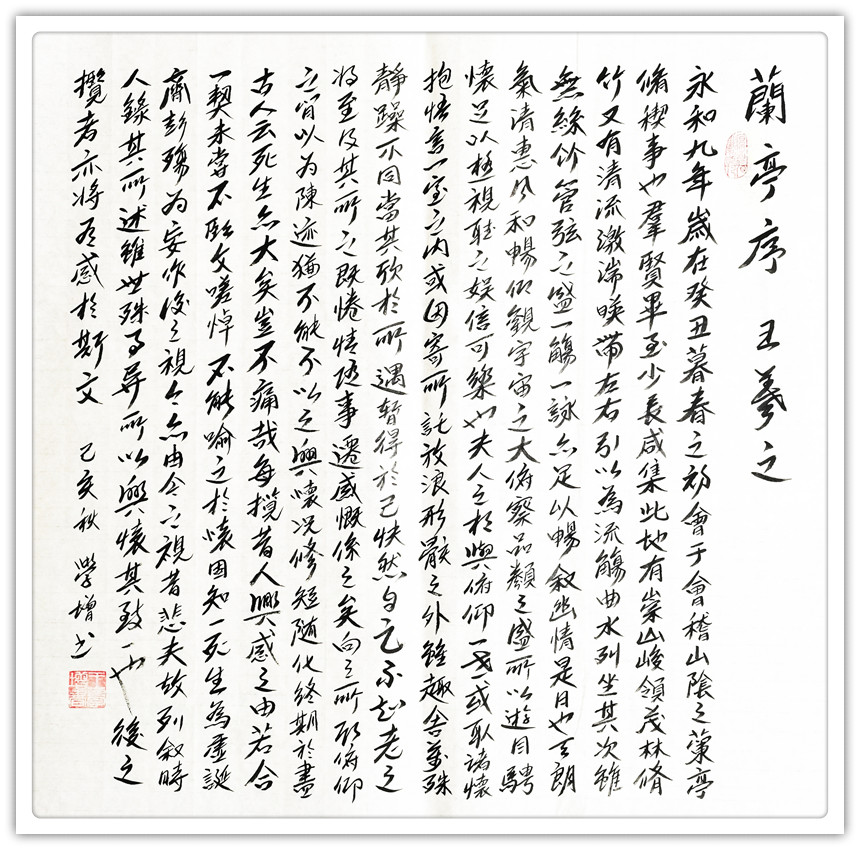 蘭亭序 王羲之
永和九年歲在癸丑暮春之初會于會稽山陰之蘭亭
脩稧事也羣賢畢至少長咸集此地有崇山峻領茂林脩
竹又有清流激湍暎帶左右引以為流觴曲水列坐其次雖
無絲竹管弦之盛一觴一詠亦足以暢敘幽情是日也天朗
氣清惠風和暢仰觀宇宙之大俯察品類之盛所以遊目騁
懷足以極視聽之娛信可樂也夫人之相與俯仰一世或取諸懷
抱悟言一室之內或因寄所託放浪形骸之外雖趣舍萬殊
靜躁不同當其欣於所遇暫得於己快然自足不知老之
將至及其所之既惓情隨事遷感慨係之矣向之所欣俯仰
之間以為陳迹猶不能不以之興懷況修短隨化終期於盡
古人云死生亦大矣豈不痛哉每攬昔人興感之由若合
一契未嘗不臨文嗟悼不能喻之於懷固知一死生為虛誕
齊彭殤為妄作後之視今亦由今之視昔悲夫故列敘時
人錄其所述雖世殊事異所以興懷其致一也後之
攬者亦將有感於斯文 己亥秋 學增書